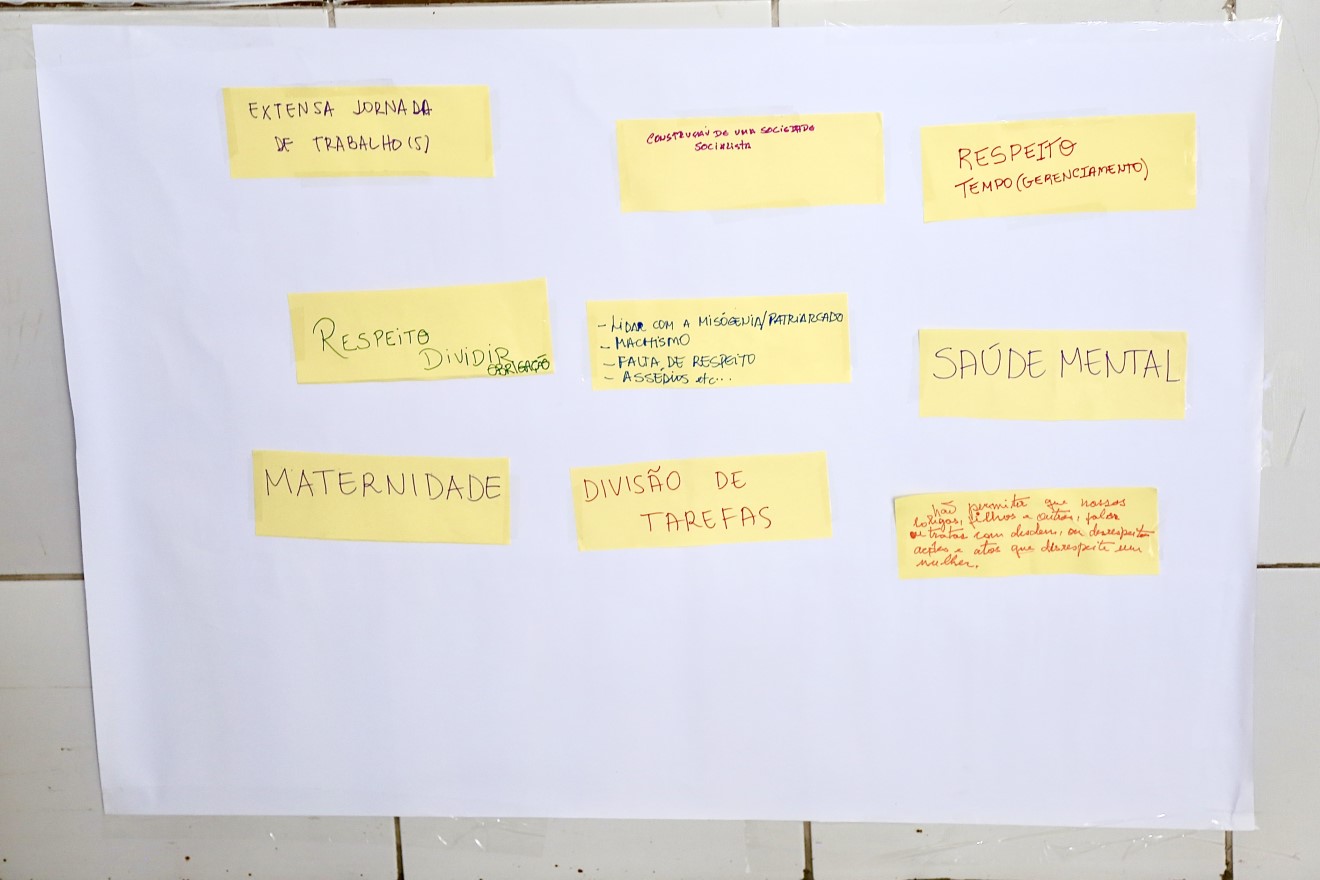 EXTENSA JORNADA
DE TRABALHO(S)
CONSTRUÇAÚ DE UMA SOCIEDADE
SOCIALISTA
RESPEITO
TEMPO (GERENCIAMENTO)
RESPEITO
DIVIDIR
OBRIGAÇÃO
- LIDAR COM A MISÓGENIA/PATRIARCADO
- MACHISMO
- FALTA DE RESPEITO
- ASSÉDIOS etc...
SAÚDE MENTAL
MATERNIDADE
DIVISÃO DE
TAREFAS
não permitir que nossos
filhos e outros, falar
tratas com desdem, ou desrespeito
acções e atos que desrespeite um
mulher.